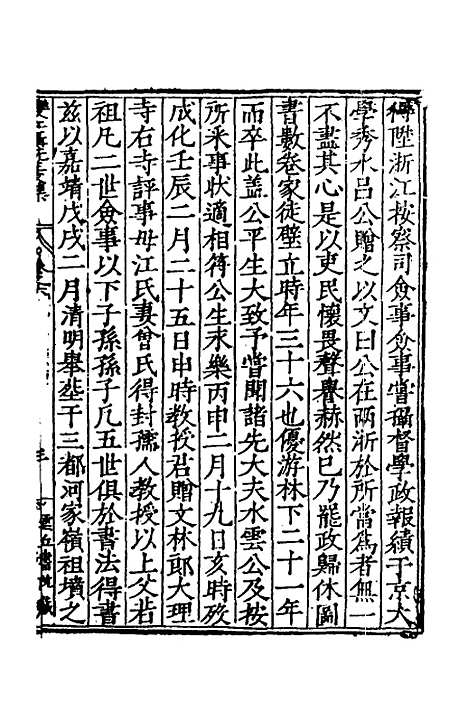 陞浙江按察司僉事僉事嘗攝督學政報績于京大
學秀水呂公贈之以文曰公在兩浙於所當為者無一
不盡其心是以吏民懷畏聲譽赫然已乃罷政歸休圖
書數卷家徒壁立時年三十六也優游林下二十一年
而卒此蓋公平生大致予嘗聞諸先大夫水雲公及按
所釆事狀適相符公生永樂丙申二月十九日亥時歿
成化壬辰二月二十五日申時教授君贈文林郎大理
寺右寺評事母江氏妻曾氏得封孺人教授以上父若
祖凡二世僉事以下子孫孫子凡五世俱於書法得書
茲以嘉靖戊戌二月清明舉塟于三都河家嶺祖墳之